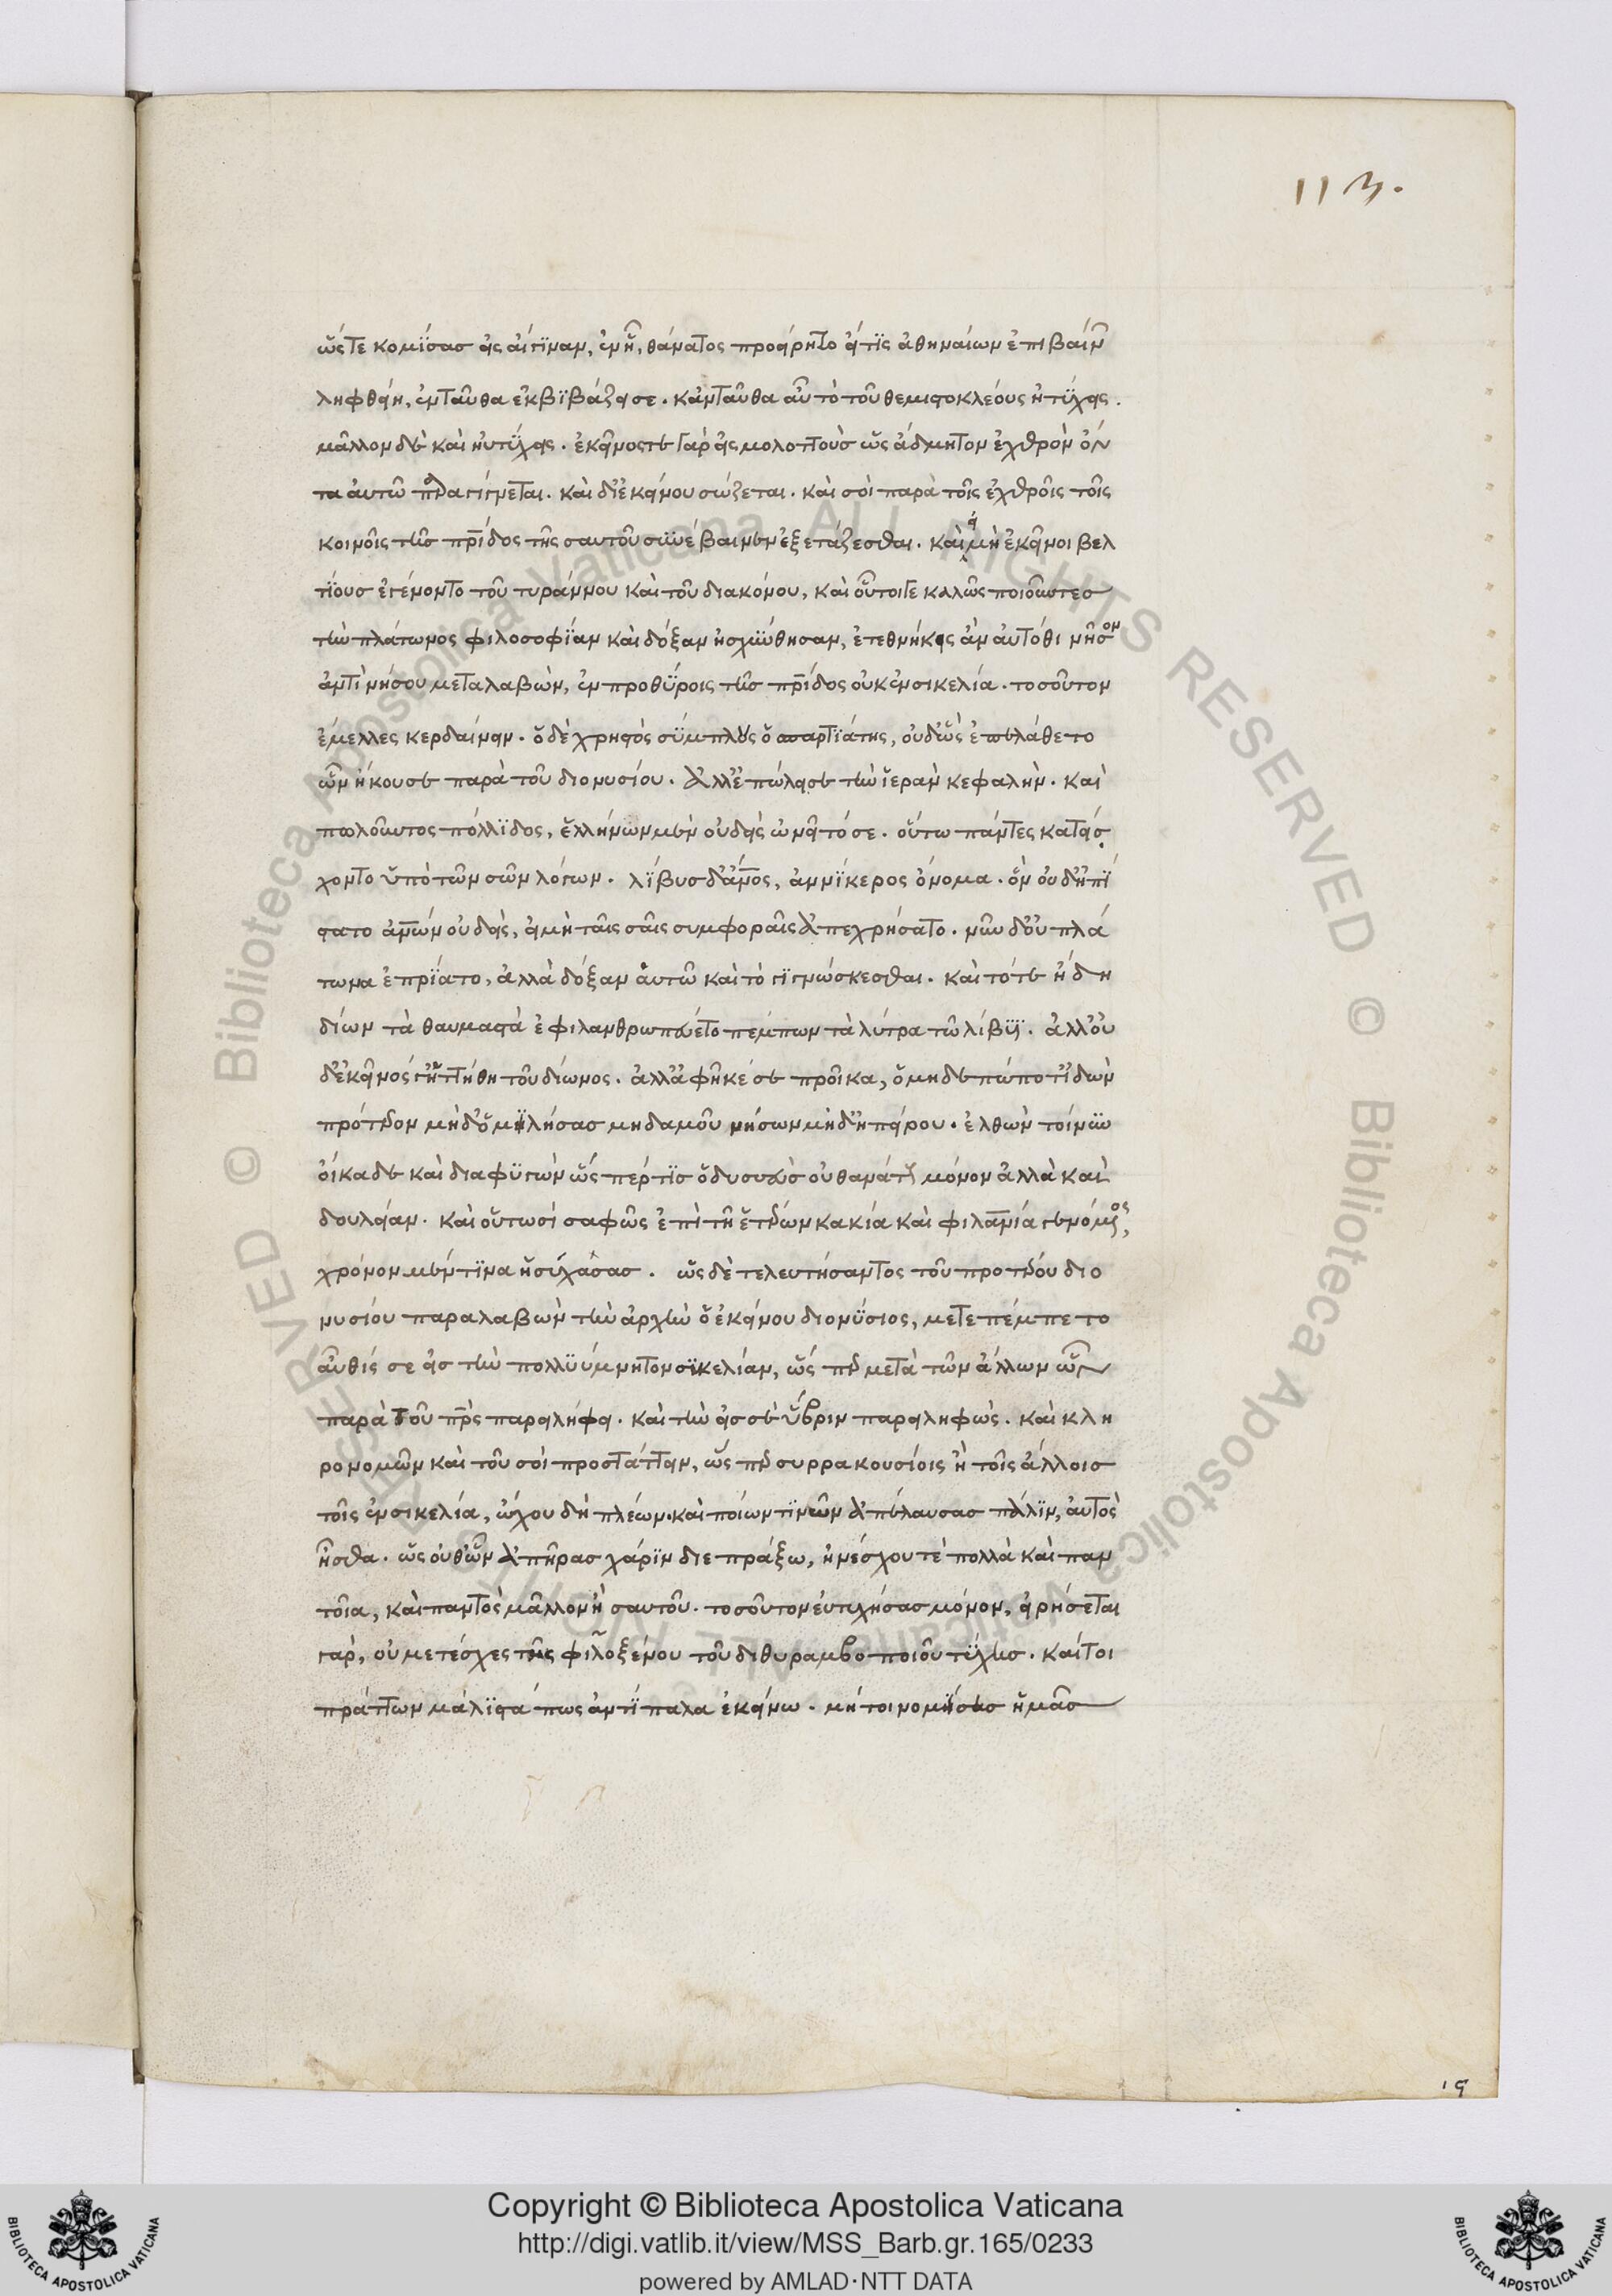 113.
ὥστε κομίσας εἰς αἴγιναν, ἐν ᾗ, θάνατος προείρητο εἴ τις ἀθηναίων ἐπιβαίν
ληφθείη, ἐνταῦθα ἐκβιβάζει σε. κἀνταῦθα αὖ τὸ τοῦ θεμιστοκλέους ηὐτύχεις.
μᾶλλον δὲ καὶ ηὐτύχεις. ἐκεῖνός τε γὰρ εἰς μολοττοὺς ὡς ἄδμητον ἐχθρὸν ὄν
τα αὐτῶ παραγίγνεται. καὶ δι' ἐκείνου σώζεται. καὶ σοὶ παρὰ τοῖς ἐχθροῖς τοῖς
κοινοῖς τῆς πρίδος τῆς σαυτοῦ συνέβαινεν ἐξετάζεσθαι. καὶ εἰ μὴ ἐκεῖνοι βελ
τίους ἐγένοντο τοῦ τυράννου καὶ τοῦ διακόνου, καὶ οὗτοί γε καλῶς ποιοῦντες
τὴν πλάτωνος φιλοσοφίαν καὶ δόξαν ἠσχύνθησαν, ἐτεθνήκεις ἂν αὐτόθι νῆσον
ἀντὶ νήσου μεταλαβὼν, ἐν προθύροις τῆς πρίδος οὐκ ἐν σικελία. τοσοῦτον
ἔμελλες κερδαίνειν. ὁ δὲ χρηστὸς σύμπλους ὁ σπαρτιάτης, οὐδ' ὣς ἐπελάθετο
ὧν ἤκουσε παρὰ τοῦ διονυσίου. ἀλλ' ἐπώλησε τὴν ἱερὰν κεφαλήν. καὶ
πωλοῦντος πόλλιδος, ἑλλήνων μὲν οὐδεὶς ὠνεῖτό σε. οὕτω πάντες κατείσ
χοντο ὑπὸ τῶν σῶν λόγων. λίβυς δ' ἀνος, ἀννίκερος ὄνομα. ὃν οὐδ' ἠπί
στατο ἀνων οὐδεὶς, εἰ μὴ ταῖς σαῖς συμφοραῖς ἀπεχρήσατο. νῦν δ' οὐ πλά
τωνα ἐπρίατο, ἀλλὰ δόξαν αὐτῶ καὶ τὸ γιγνώσκεσθαι. καὶ τότε ἤδη
δίων τὰ θαυμαστὰ ἐφιλανθρωπεύετο πέμπων τὰ λύτρα τῶ λίβυϊ. ἀλλ' οὐ
δ' ἐκεῖνός γ' ἡττήθη τοῦ δίωνος. ἀλλ' ἀφῆκέ σε προῖκα, ὁ μηδὲ πώποτ' ἰδὼν
πρότερον μὴδ' ὁμιλήσας μηδαμοῦ νήσων μὴδ' ἠπείρου. ἐλθὼν τοίνυν
οἴκαδε καὶ διαφυγὼν ὥσπερ τις ὀδυσσεὺς οὐ θάνατον μόνον ἀλλὰ καὶ
δουλείαν. καὶ οὑτωσὶ σαφῶς ἐπὶ τῆ ἑτέρων κακία καὶ φιλανία γενόμενος,
χρόνον μέν τινα ἡσύχασας. ὡς δὲ τελευτήσαντος τοῦ προτέρου διο
νυσίου παραλαβὼν τὴν ἀρχὴν ὁ ἐκείνου διονύσιος, μετεπέμπετο
αὖθίς σε εἰς τὴν πολυύμνητον σικελίαν, ὥσπερ μετὰ τῶν ἄλλων ὧν
παρὰ τοῦ πρς παρειλήφει. καὶ τὴν εἰς σὲ ὕβριν παρειληφὼς. καὶ κλη
ρονομῶν καὶ τοῦ σοὶ προστάττειν, ὥσπερ συρρακουσίοις ἢ τοῖς ἄλλοις
τοῖς ἐν σικελία, ᾤχου δὴ πλέων. καὶ ποίων τινῶν ἀπέλαυσας πάλιν, αὐτὸς
ἦσθα. ὡς οὐθ' ὧν ἀπῆρας χάριν διεπράξω, ἠνέσχου τὲ πολλὰ καὶ παν
τοῖα, καὶ παντὸς μᾶλλον ἢ σαυτοῦ. τοσοῦτον εὐτυχήσας μόνον, εἰρήσεται
γὰρ, οὐ μετέσχες τῆς φιλοξένου τοῦ διθυραμβοποιοῦ τύχης. καίτοι
πράττων μάλιστά πως ἀντίπαλα ἐκείνω. μή τοι νομίσῃς ἡμᾶς
19
Copyright © Biblioteca Apostolica Vaticana
http://digi.vatlib.it/view/MSS_Barb.gr.165/0233
powered by AMLAD·NTT DATA